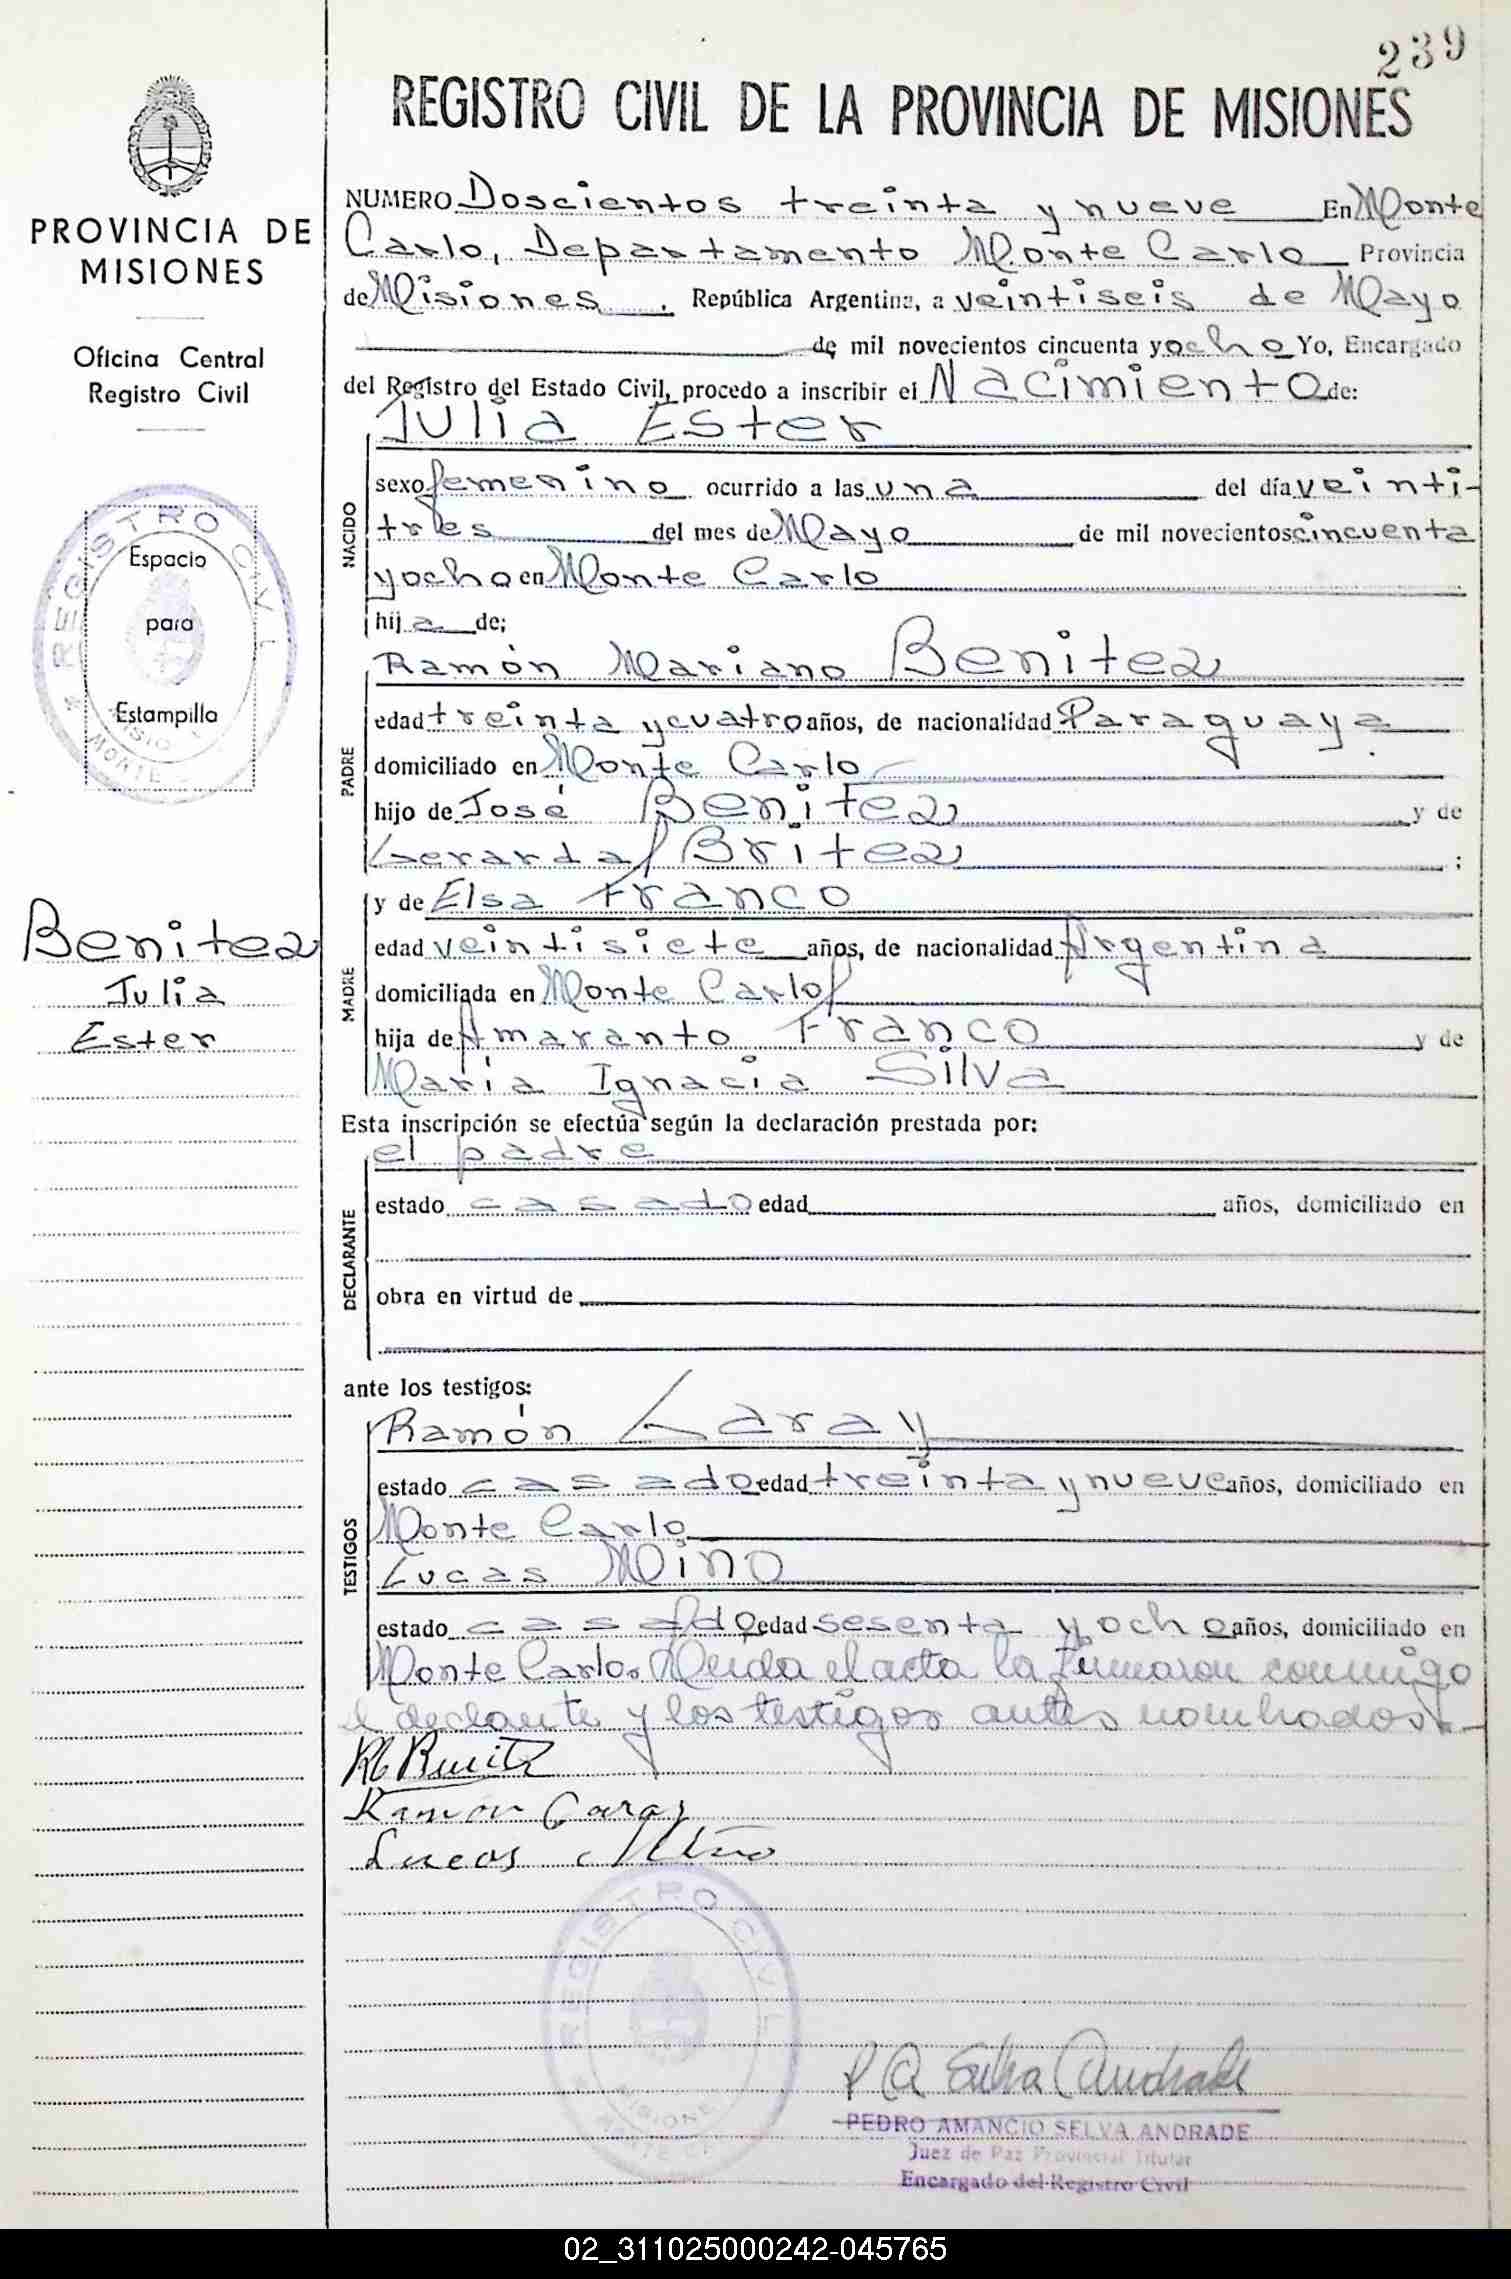 239
REGISTRO CIVIL DE LA PROVINCIA DE MISIONES
PROVINCIA DE
MISIONES
Oficina Central
Registro Civil
REGISTRO CIVIL
Espacio
para
Estampilla
MISIO
MONTE
Benitez
Julia
Ester
NUMERO Doscientos treinta y nueve En Monte
Carlo, Departamento Monte Carlo Provincia
de Misiones. República Argentina, a veintiseis de Mayo
de mil novecientos cincuenta y ocho Yo, Encargado
del Registro del Estado Civil, procedo a inscribir el Nacimiento de:
Julia Ester
NACIDO
sexo femenino ocurrido a las una del día veinti-
tres del mes de Mayo de mil novecientos cincuenta
y ocho en Monte Carlo
hija de;
Ramón Mariano Benitez
PADRE
edad treinta y cuatro años, de nacionalidad Paraguaya
domiciliado en Monte Carlo
hijo de José Benitez y de
Gerarda Britez ;
y de Elsa Franco
MADRE
edad veintisiete años, de nacionalidad Argentina
domiciliada en Monte Carlo
hija de Amaranto Franco y de
María Ignacia Silva
Esta inscripción se efectúa según la declaración prestada por:
el padre
DECLARANTE
estado casado edad años, domiciliado en
obra en virtud de
ante los testigos:
Ramón Garay
TESTIGOS
estado casado edad treinta y nueve años, domiciliado en
Monte Carlo
Lucas Miño
estado casado edad sesenta y ocho años, domiciliado en
Monte Carlo. Leida el acta la firmaron conmigo
el declante y los testigos antes nombrados.-
R Benitz
Ramon Garay
Lucas Miño
REGISTRO CIVIL
MISIONES
MONTE
P A Selva Andrade
PEDRO AMANCIO SELVA ANDRADE
Juez de Paz Provincial Titular
Encargado del Registro Civil
02_311025000242-045765